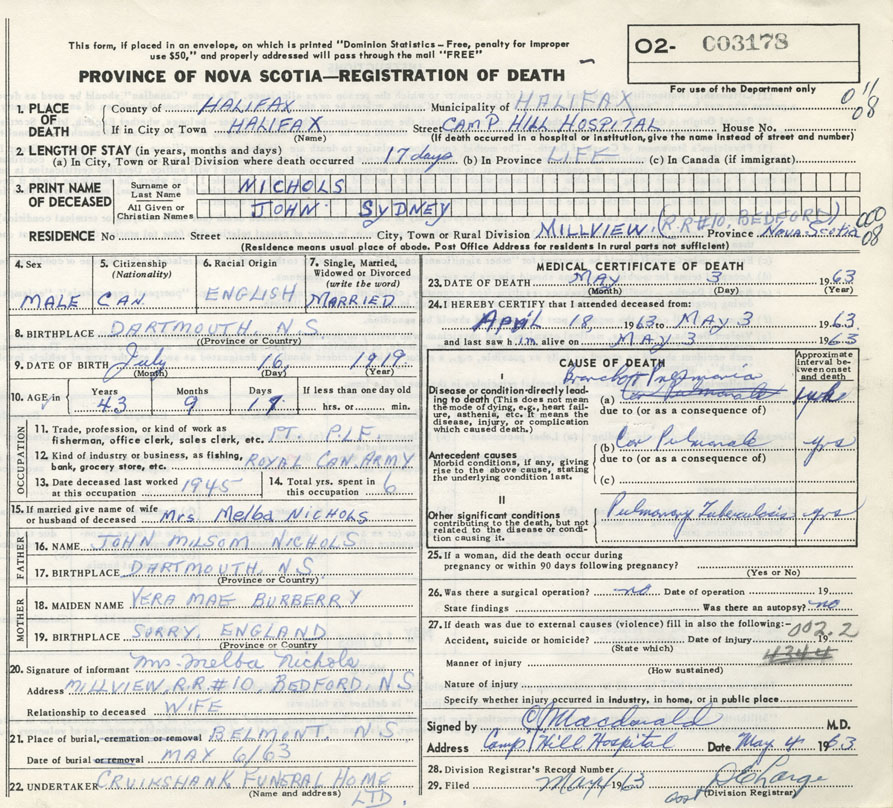 This form, if placed in an envelope, on which is printed "Dominion Statistics – Free, penalty for improper
use $50," and properly addressed will pass through the mail "FREE"
PROVINCE OF NOVA SCOTIA—REGISTRATION OF DEATH
O2- 003178
For use of the Department only
011
08
1. PLACE OF DEATH
County of HALIFAX Municipality of HALIFAX
If in City or Town HALIFAX Street CAMP HILL HOSPITAL House No.
(Name) (If death occurred in a hospital or institution, give the name instead of street and number)
2. LENGTH OF STAY (in years, months and days)
(a) In City, Town or Rural Division where death occurred 17 days (b) In Province LIFE (c) In Canada (if immigrant)
3. PRINT NAME OF DECEASED
Surname or Last Name NICHOLS
All Given or Christian Names JOHN SYDNEY
RESIDENCE No Street City, Town or Rural Division MILLVIEW, (R.R#10, BEDFORD) Province NOVA SCOTIA
000
08
(Residence means usual place of abode. Post Office Address for residents in rural parts not sufficient)
4. Sex MALE
5. Citizenship (Nationality) CAN
6. Racial Origin ENGLISH
7. Single, Married, Widowed or Divorced (write the word) MARRIED
8. BIRTHPLACE DARTMOUTH, N.S.
(Province or Country)
9. DATE OF BIRTH July 16, 1919
(Month) (Day) (Year)
10. AGE in Years 43 Months 9 Days 17 If less than one day old hrs. or min.
OCCUPATION
11. Trade, profession, or kind of work as
fisherman, office clerk, sales clerk, etc. PT. P.L.F.
12. Kind of industry or business, as fishing,
bank, grocery store, etc. ROYAL CAN. ARMY
13. Date deceased last worked at this occupation 1945
14. Total yrs. spent in this occupation 6
15. If married give name of wife
or husband of deceased Mrs Melba NICHOLS
FATHER
16. NAME JOHN MILSOM NICHOLS
17. BIRTHPLACE DARTMOUTH, N.S.
(Province or Country)
MOTHER
18. MAIDEN NAME VERA MAE BURBERRY
19. BIRTHPLACE SURRY, ENGLAND
(Province or Country
20. Signature of informant Mrs. Melba Nichols
Address MILLVIEW, R.R.#10, BEDFORD, N.S
Relationship to deceased WIFE
21. Place of burial, cremation or removal BELMONT, N.S
Date of burial or removal MAY 6/63
22. UNDERTAKER CRUIKSHANK FUNERAL HOME
(Name and address) LTD.
MEDICAL CERTIFICATE OF DEATH
23. DATE OF DEATH MAY 3 1963
(Month) (Day) (Year)
24. I HEREBY CERTIFY that I attended deceased from:
April 18, 1963 to MAY 3 1963
and last saw h.im. alive on MAY 3 1963
CAUSE OF DEATH
Approximate interval between onset and death
I
Disease or condition directly leading to death (This does not mean the mode of dying, e.g., heart failure, asthenia, etc. It means the disease, injury, or complication which caused death.)
(a) Cor Pulmonale
due to (or as a consequence of)
Antecedent causes
Morbid conditions, if any, giving rise to the above cause, stating the underlying condition last.
(b) Cor Pulmonale yrs
due to (or as a consequence of)
(c)
II
Other significant conditions
contributing to the death, but not related to the disease or condition causing it.
Pulmonary Tuberculosis yrs
25. If a woman, did the death occur during
pregnancy or within 90 days following pregnancy?
(Yes or No)
26. Was there a surgical operation? no Date of operation 19
State findings Was there an autopsy? no
27. If death was due to external causes (violence) fill in also the following:–
002.2
Accident, suicide or homicide? Date of injury 19
(State which)
4344
Manner of injury
(How sustained)
Nature of injury
Specify whether injury occurred in industry, in home, or in public place
Signed by Macdonald M.D.
Address Camp Hill Hospital Date May 4 1963
28. Division Registrar's Record Number
29. Filed
(Division Registrar)